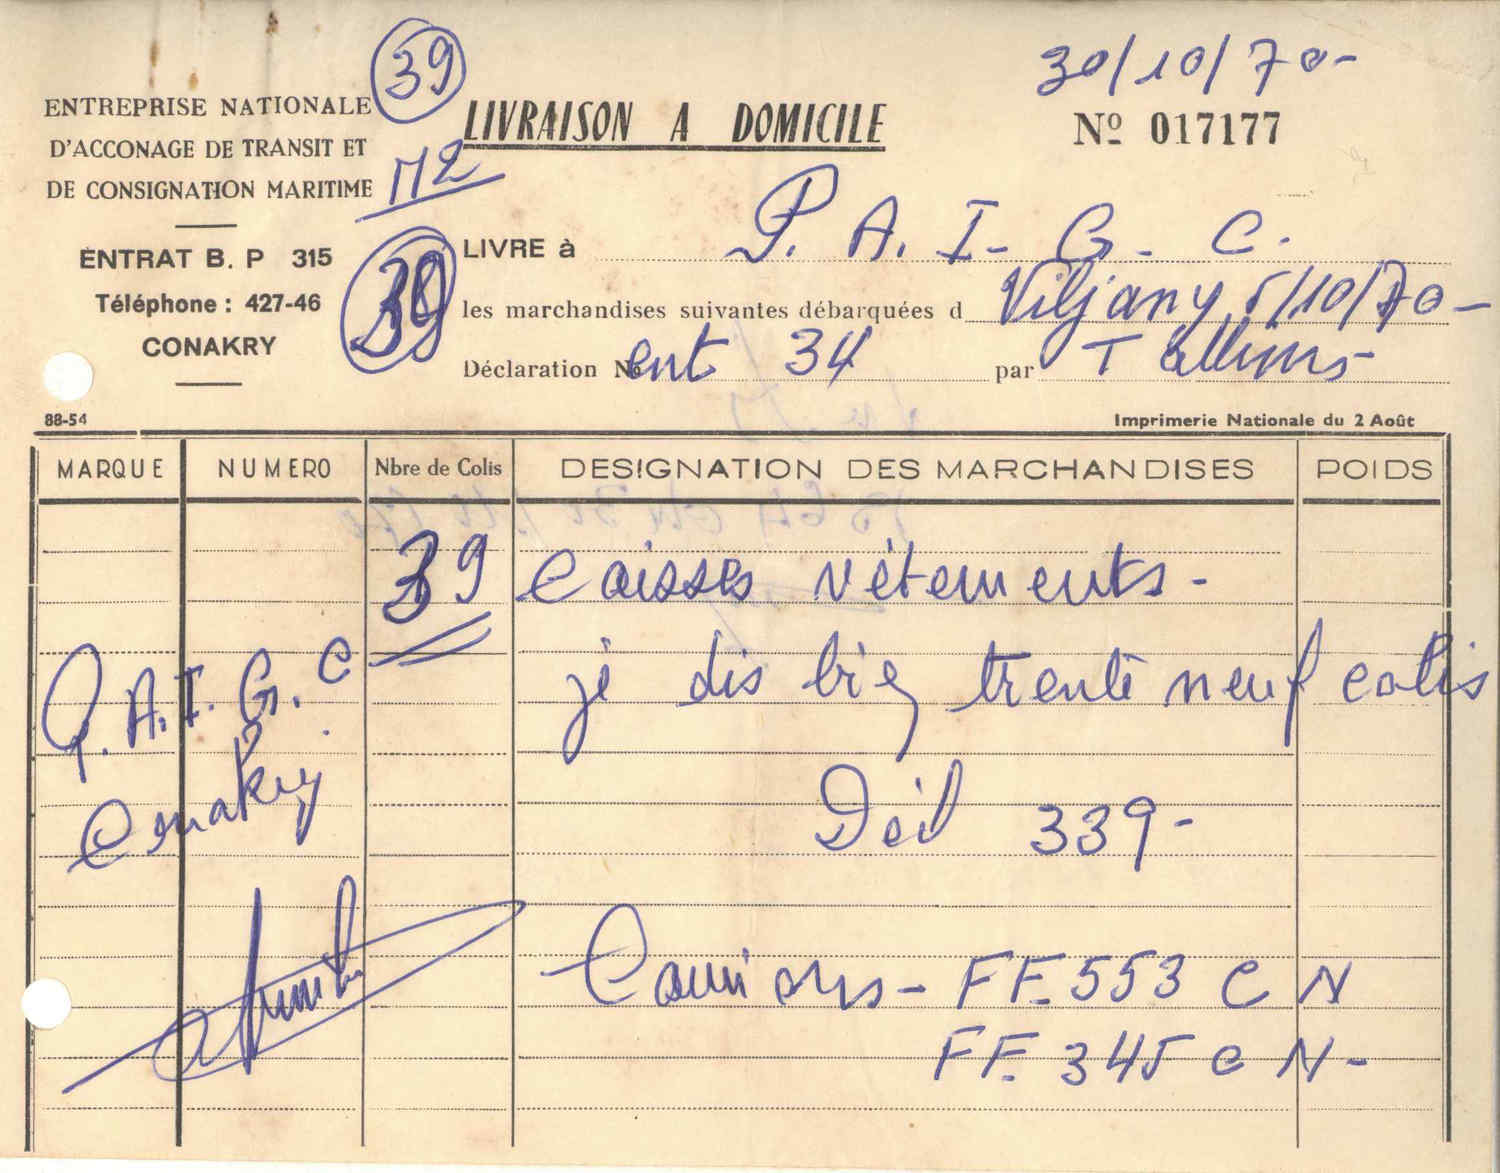 30/10/70-
39
ENTREPRISE NATIONALE
D'ACCONAGE DE TRANSIT ET
DE CONSIGNATION MARITIME
M2
LIVRAISON A DOMICILE
Nº 017177
ENTRAT B. P 315
Téléphone : 427-46
CONAKRY
39
LIVRE à P. A. I- G- C.
les marchandises suivantes débarquées d Viljany 5/10/70-
Déclaration No ent 34 par T
88-54
Imprimerie Nationale du 2 Août
MARQUE NUMERO Nbre de Colis DESIGNATION DES MARCHANDISES POIDS
39 Caisses vétements-
P.A.I.G.C
Conakry
je dis bien trente neuf colis
Dél 339-
Camions- FF.553 CN
FF.345 CN-